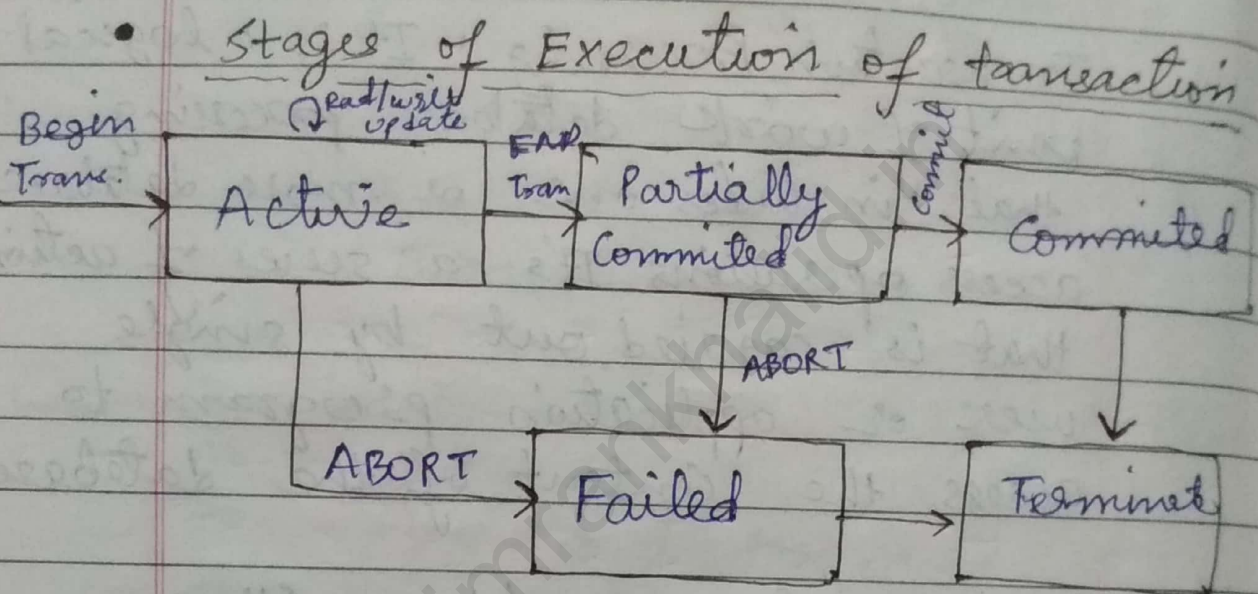 • Stages of Execution of transaction
Begin
Trans.
Read/write
update
Active
END
Tran
Partially
Commited
Commit
Commited
ABORT
ABORT
Failed
Terminet
imrankhalid